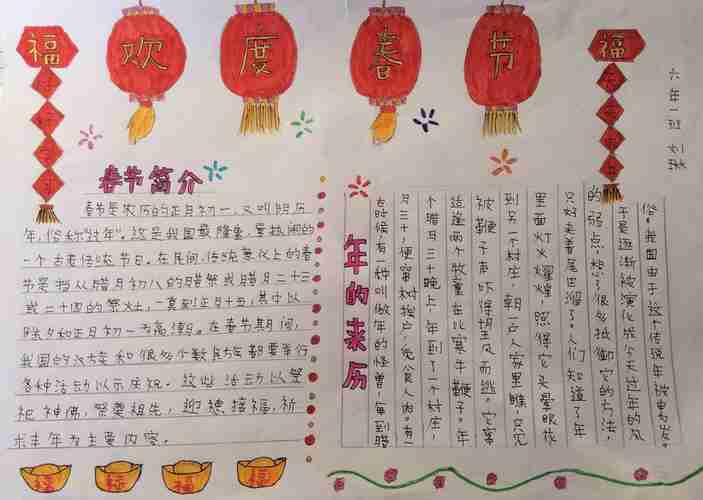 福
欢度春节
福
六年1班
春节简介
春节是农历的正月初一,又叫阴历
年,俗称"过年"。这是我国最隆重,最热闹的
一个古老传统节日。在民间,传统意义上的春
节是指从腊月初八的腊祭或腊月二十三
或二十四的祭灶,一直到正月十五,其中以
除夕和正月初一为高潮。在春节期间,
我国的汉族和很多少数民族都要举行
各种活动以示庆祝。这些活动以祭
祀神佛,祭奠祖先,迎禧接福,祈
求丰年为主要内容。
年的来历
古时候有一种叫做年的怪兽,每到腊
月三十,便窜村挨户,觅食人肉。有一
个腊月三十晚上,年到了一个村庄,
适逢两个牧童在比赛牛鞭子。年
被鞭子声吓得望风而逃。它窜
到另一个村庄,朝一户人家里瞧,只见
里面灯火辉煌,照得它头晕眼花
只好夹着尾巴溜了。人们知道了年
的弱点,想了很多抵御它的方法,
于是逐渐被演化成今天过年的风
俗。我国由于这个传说年被
福
福
福
福